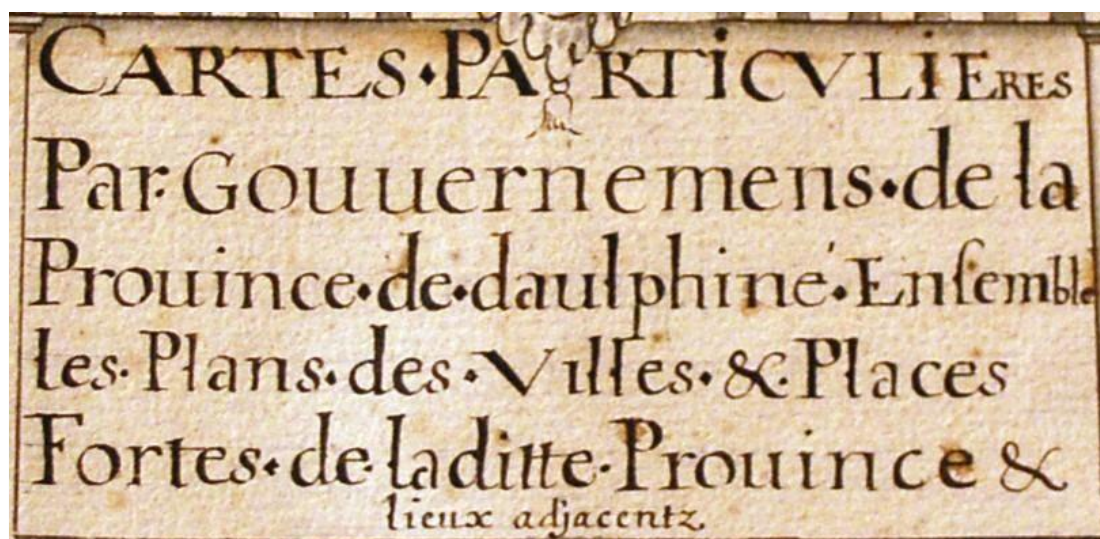 CARTES·PARTICVLIERES
Par·Gouuernemens·de la
Prouince·de·daulphiné·Enſemble
les·Plans·des·Villes·&·Places
Fortes·de·laditte·Prouince &
lieux adjacentz